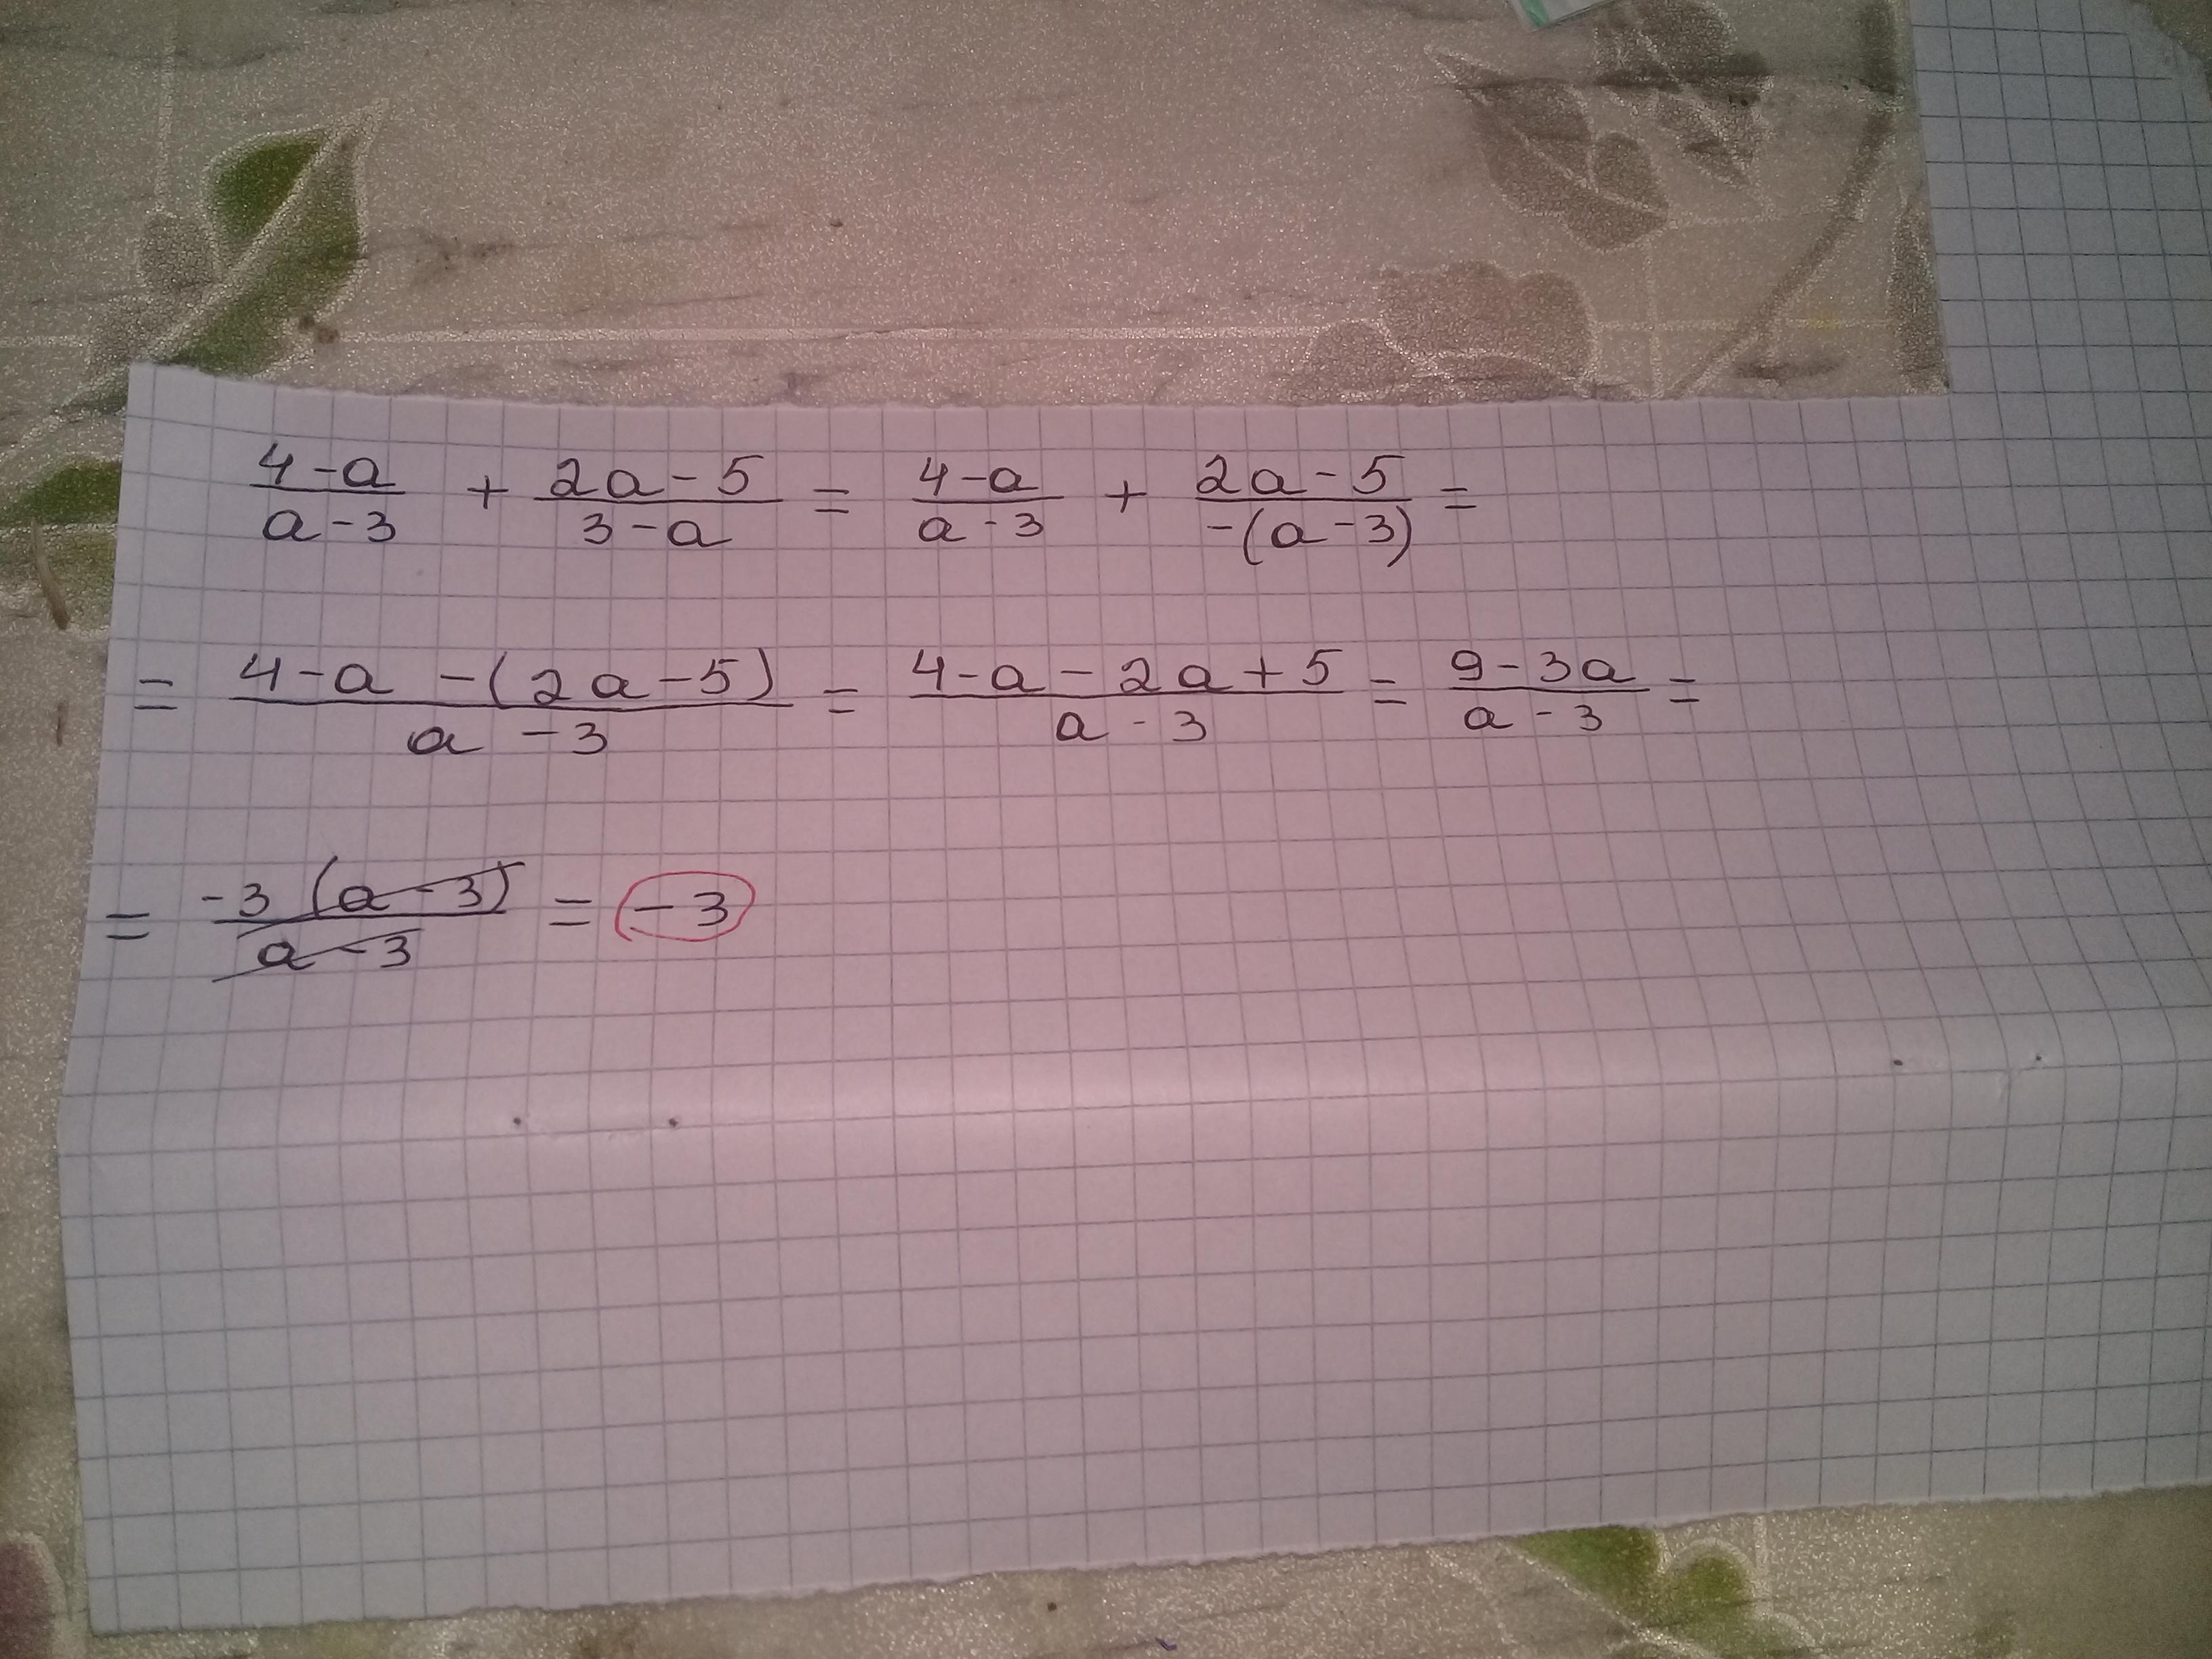 (4-a)/(a-3) + (2a-5)/(3-a) = (4-a)/(a-3) + (2a-5)/(-(a-3)) =
= (4-a-(2a-5))/(a-3) = (4-a-2a+5)/(a-3) = (9-3a)/(a-3) =
= (-3(a-3))/(a-3) = -3